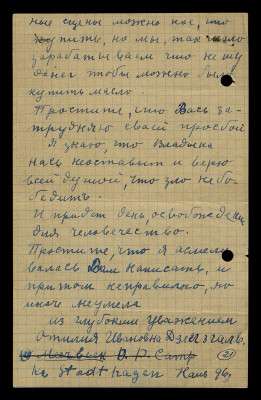 ные сцены можно кое, что
купить, но мы, так мало
зарабатываем что не му
денег чтобы можно было
купить масло.
Простите, что Вась за-
трудняю своей просьбой
Я знаю, что Владыка
нась неоставит и верю
всей душой, что зло не бо-
бедить.
И придет день, освобожде
для человечество.
Простите, что я осмели
валась Вам написать, и
притом неправильно, но
иначе неумела
из глубоким уважением
Емилия Ивановна
D.P. Camp
Ka Stadthagen Haus 96,
21